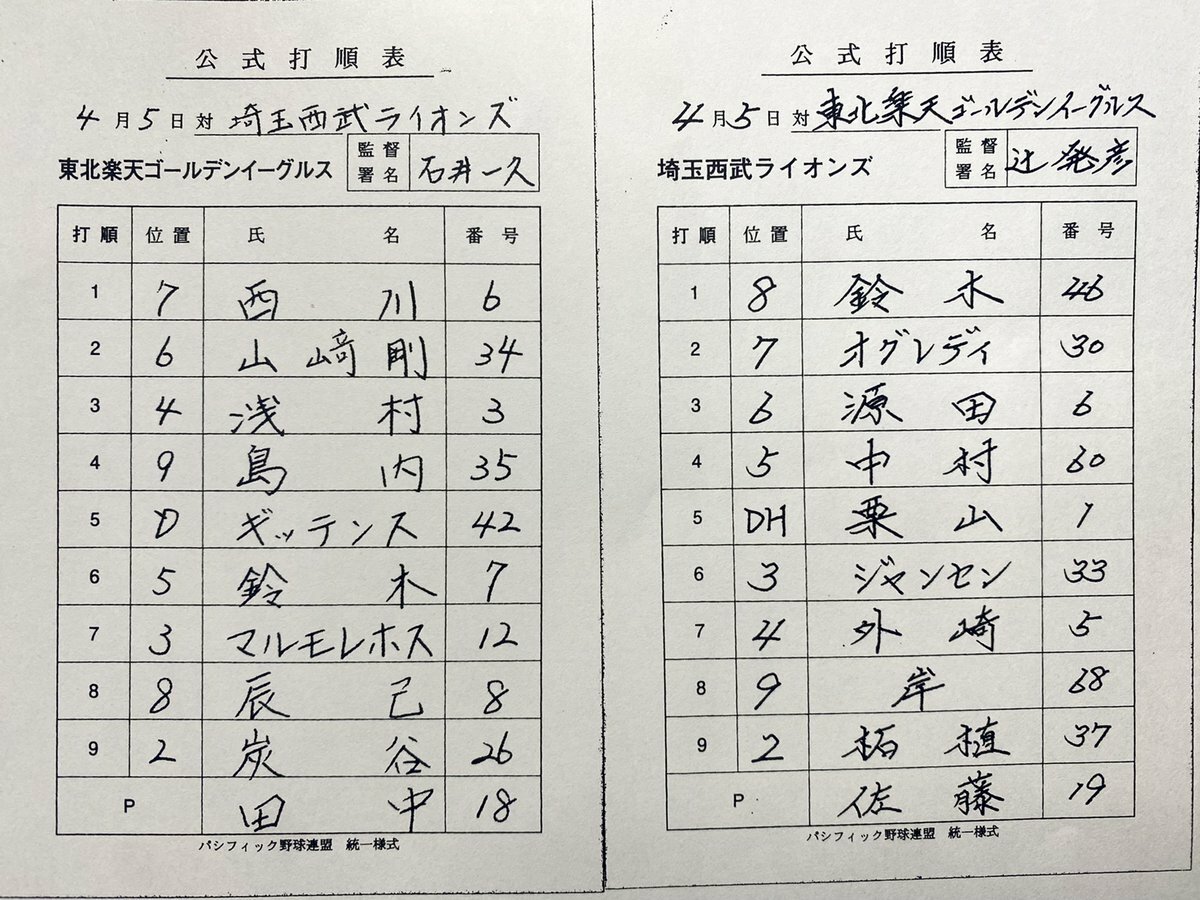 公式打順表
4月5日対 埼玉西武ライオンズ
東北楽天ゴールデンイーグルス 監督署名 石井一久
打順 位置 氏名 番号
1 7 西川 6
2 6 山﨑剛 34
3 4 浅村 3
4 9 島内 35
5 D ギッテンス 42
6 5 鈴木 7
7 3 マルモレホス 12
8 8 辰己 8
9 2 炭谷 26
P 田中 18
パシフィック野球連盟 統一様式
公式打順表
4月5日対 東北楽天ゴールデンイーグルス
埼玉西武ライオンズ 監督署名 辻発彦
打順 位置 氏名 番号
1 8 鈴木 46
2 7 オグレディ 30
3 6 源田 6
4 5 中村 60
5 DH 栗山 1
6 3 ジャンセン 33
7 4 外崎 5
8 9 岸 68
9 2 柘植 37
P 佐藤 19
パシフィック野球連盟 統一様式